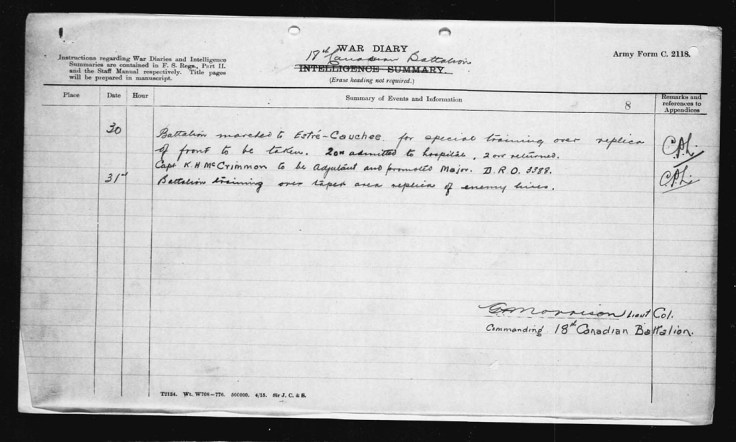 WAR DIARY
18th Canadian Battalion
INTELLIGENCE SUMMARY.
(Erase heading not required.)
Army Form C. 2118.
Instructions regarding War Diaries and Intelligence
Summaries are contained in F. S. Regs., Part II.
and the Staff Manual respectively. Title pages
will be prepared in manuscript.
Place Date Hour Summary of Events and Information Remarks and references to Appendices
8
30 Battalion marched to Estré-Cauchee for special training over replica
of front to be taken. 2 OR admitted to hospital, 2 OR returned.
Capt K.H McCrimmon to be Adjutant and promoted Major. D.R.O. 3388.
31st Battalion training over taped area replica of enemy lines.
Morrison Lieut Col.
Commanding 18th Canadian Battalion.
T2134. Wt. W708—776. 500000. 4/15. Sir J. C. & S.